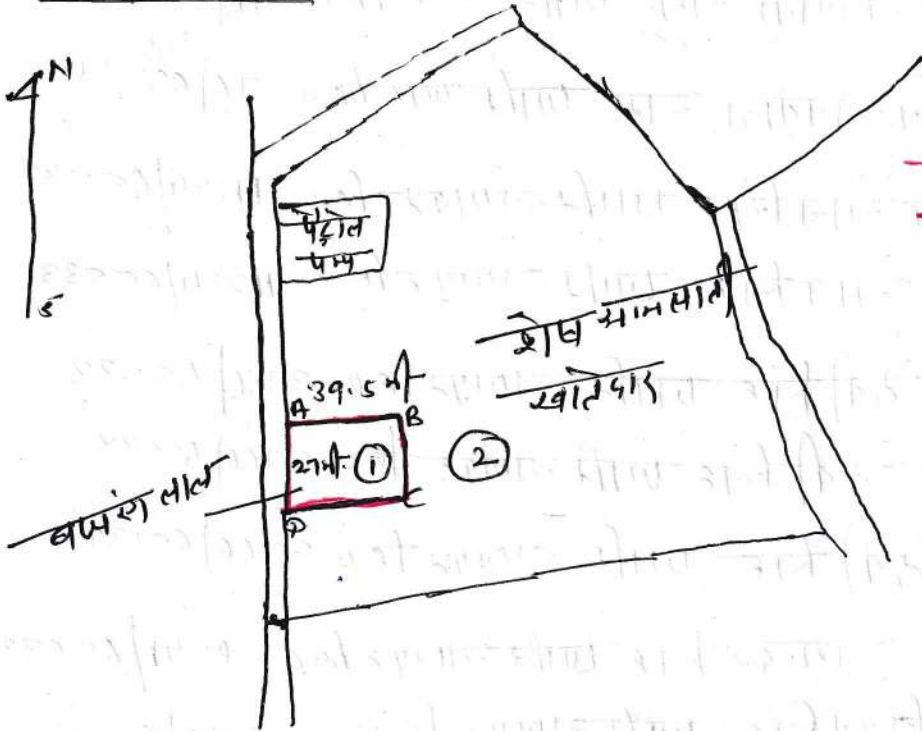 N
S
पेट्रोल
पम्प
शेष आम लाल
खातेदार
A 39.5 मी
B
27मी. ①
②
C
D
बजरंग लाल